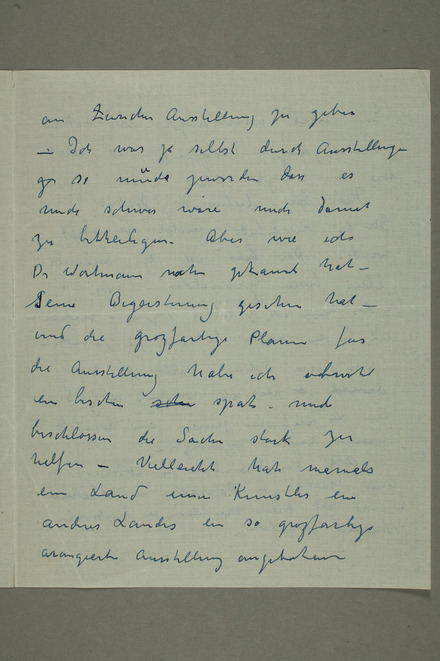 an Züricher Ausstellung zu geben
— Ich war ja selbst durch Ausstellungen
gar so müde geworden dass es
mich schwer wäre mich damit
zu betheiligen. Aber wie ich
Dr Wartmann gekannt hat –
Seine Begeisterung gesehen hat –
und die grossartige Plane für
die Ausstellung habe ich
ein bischen spät. und
beschlossen die Sache stark zu
helfen – Vielleicht hat niemals
ein Land einen Künstler ein
andres Landes ein so grossartige
arangierte Ausstellung angeboten